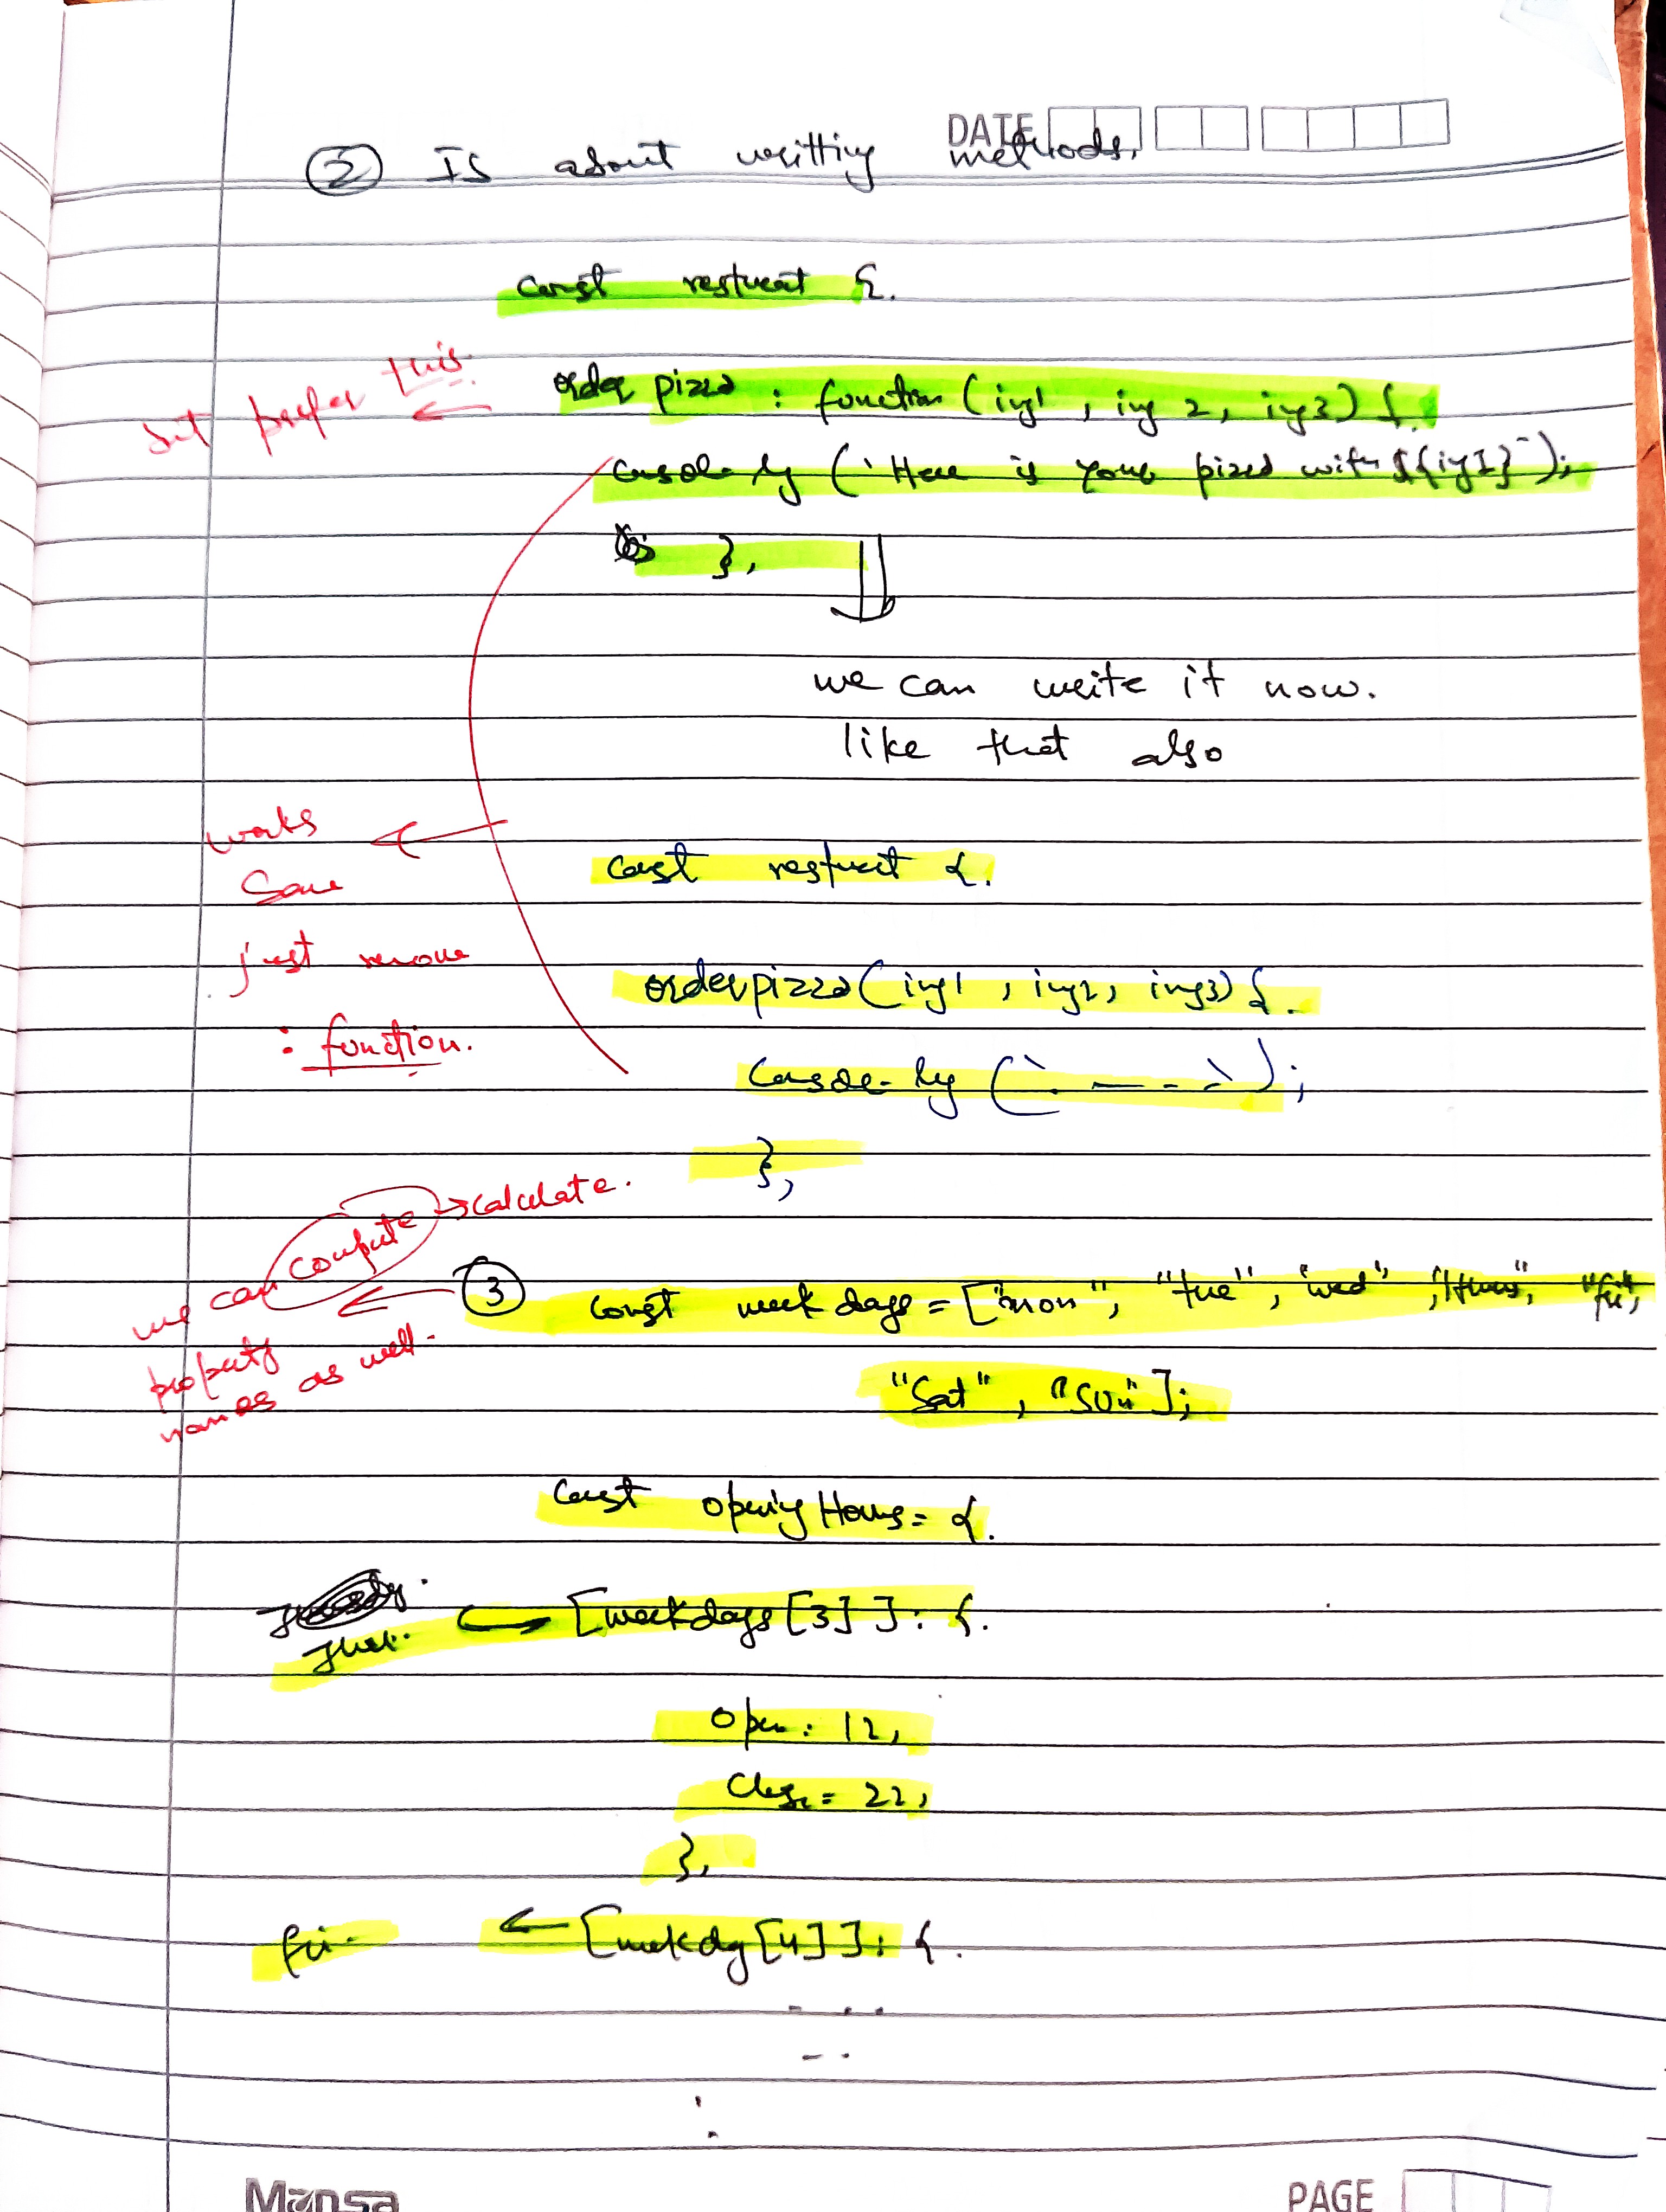 DATE
② Is about writting methods.
const resturat {.
Jst prefer this
order pizza : function (ing1 , ing 2, ing3) {
console.log (`Here is your pizza with ${ing1}`);
},
we can write it now.
like that also
works
Same
just remove
: function.
const resturat {.
orderpizza(ing1 , ing2, ing3) {.
Console.log (` — - - `);
},
we can compute → calculate.
property
names as well.
③ const weekdays = ["mon", "tue", "wed", "thurs", "fri",
"Sat", "SUN"];
Const openingHours = {.
Thur.
[weekdays[3]]: {.
Open: 12,
Close = 22,
},
fri
[weekday[4]]: {.
- - -
- .
Mansa
PAGE